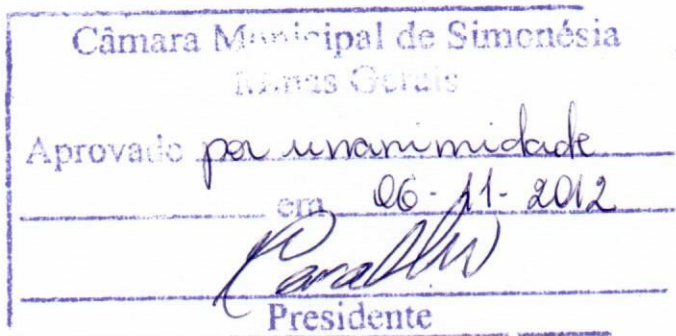 Câmara Municipal de Simonésia
Minas Gerais
Aprovado por unanimidade
em 06-11-2012
Presidente